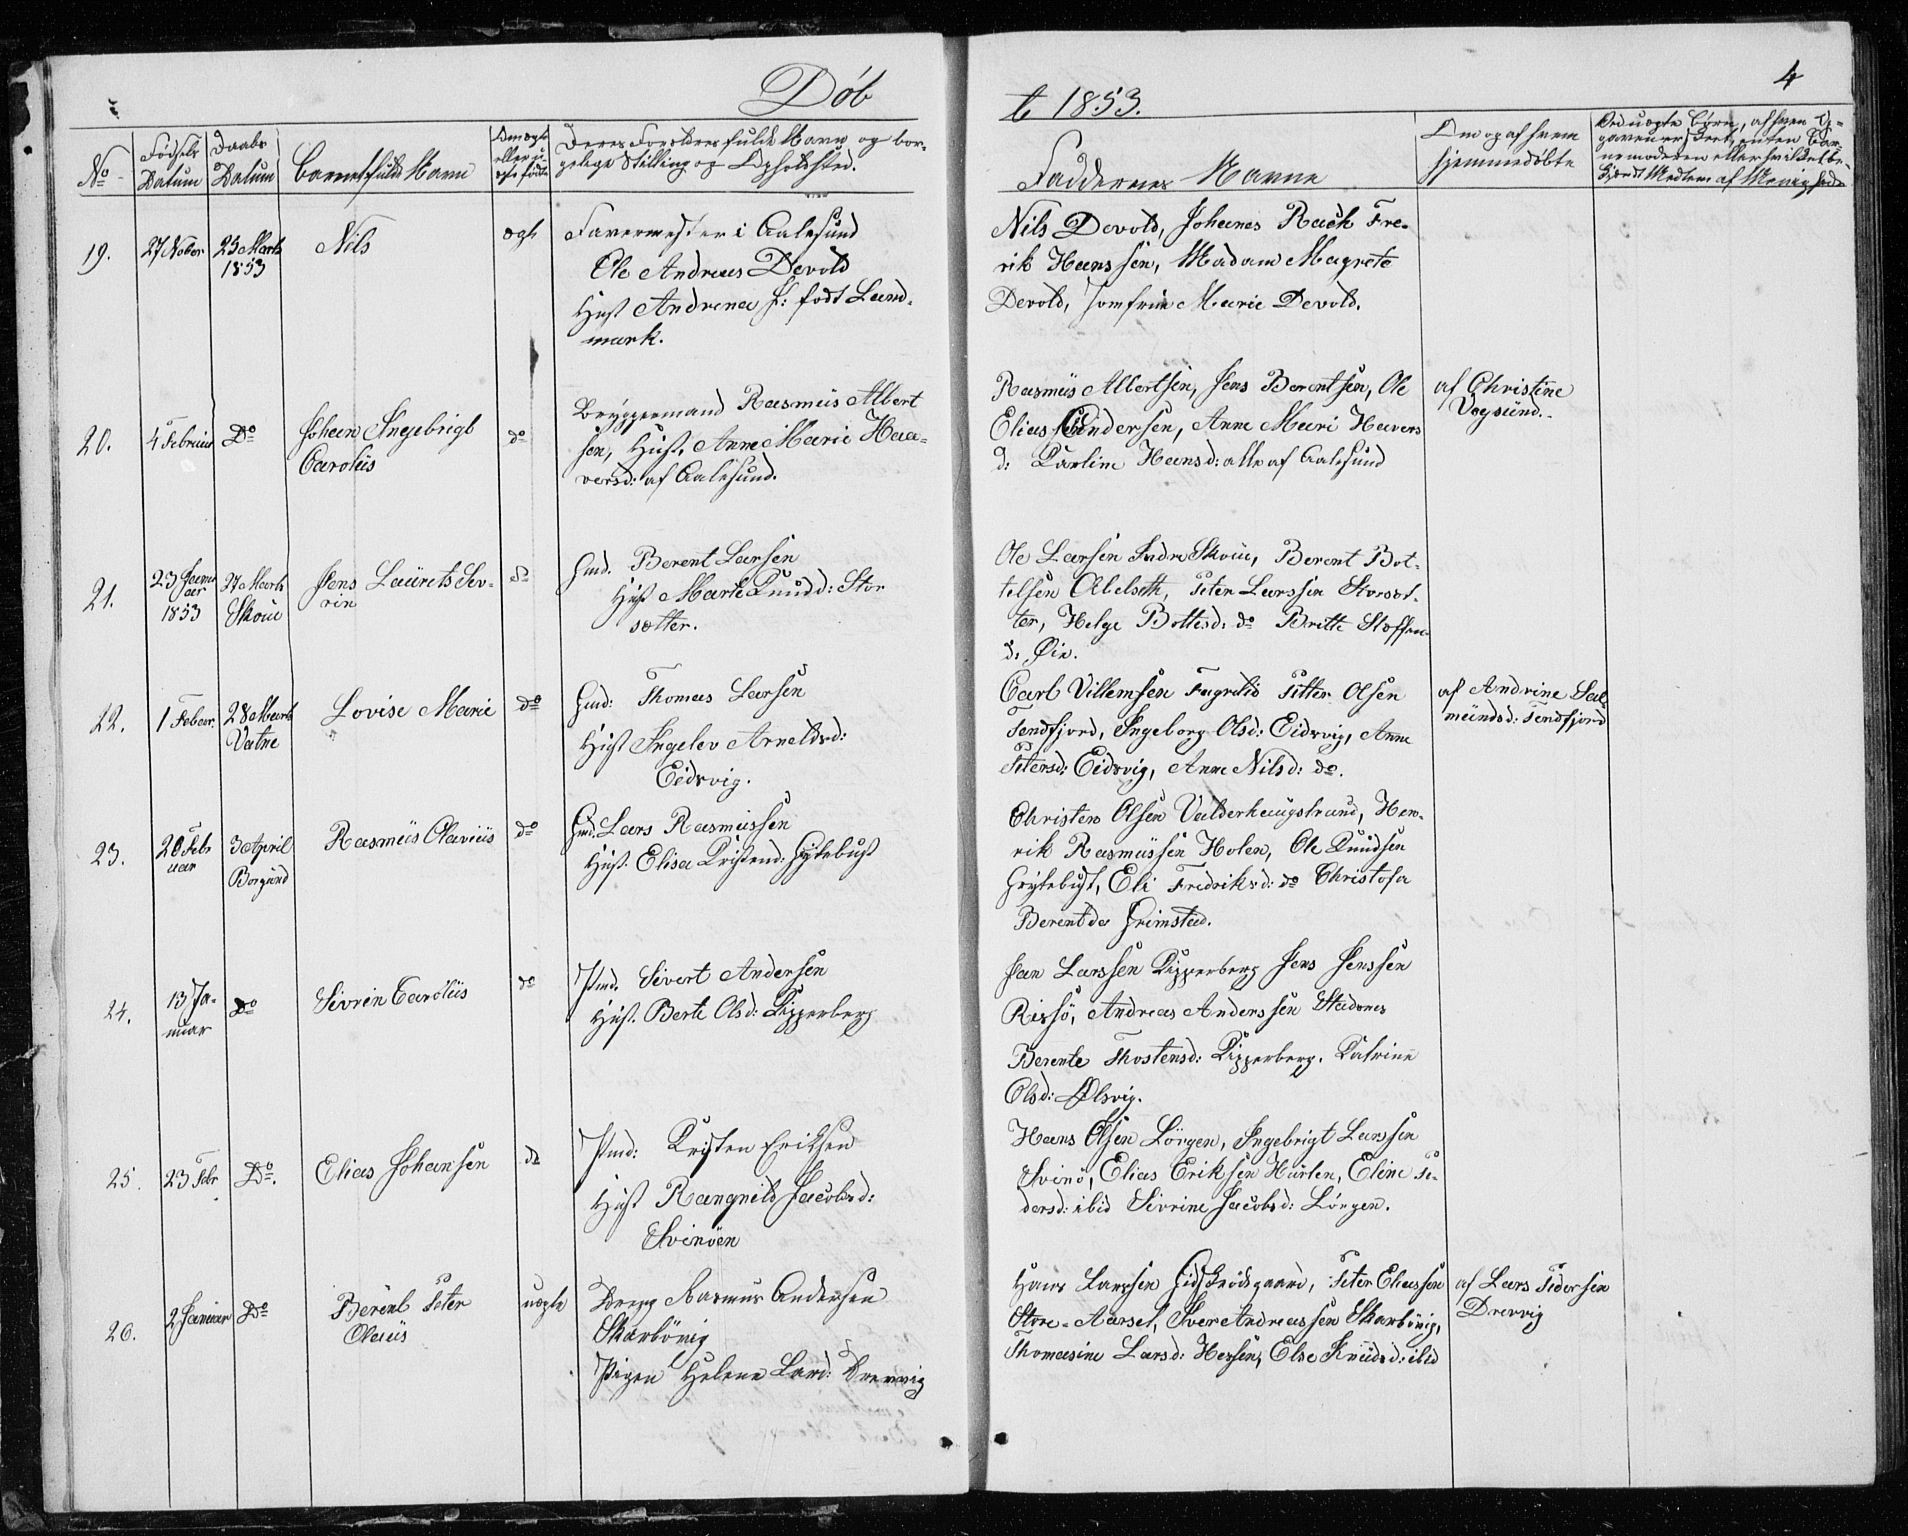 Døb
t 1853.
4
No
Fødsels
Datum
Daabs
Datum
Barnets fulde Navn
Om ægte
eller u-
ægte født
Deres Forældres fulde Navn og bor-
gelige Stilling og Opholdsted.
Faddernes Navne
Om og af hvem
hjemmedøbte
19.
27 Nobr
23 Marts
1853
Nils
ægte
Farvermester i Aalesund
Ole Andreas Devold
Hust Andrena f: født Land-
mark.
Nils Devold, Johanes Rack Fre-
rik Hanssen, Madam Magrete
Devold, Jomfrue Marie Devold.
20.
4 Februar
Do
Johan Ingebrigt
Carolus
do
Bryggermand Rasmus Albert
sen, Hust. Anne Marie Haa-
versd: af Aalesund.
Rasmus Albertsen, Jens Berentsen, Ole
Elias Andersen, Anne Mari Havers
d: Karline Hansd: alle af Aalesund
af Christine
Vegsund.
21.
23 Janu
ar
1853
27 Marts
Skoue
Jens Laurits Sev-
rin
do
Gmd. Berent Larsen
Hust Marte Knudd: Stor
sætter.
Ole Larsen Indre Skoue, Berent Bot-
telsen Alelseth, Peter Larssen Storsæt-
ter, Helge Bottesd: do Britte Stoffen
d: Øie.
22.
1 Febr.
28 Marts
Vatne
Lovise Marie
do
Gmd: Thomas Larsen
Hust Ingelev Arneldsd:
Eidsvig.
Carl Villemsen Fagrelid Petter Olsen
Tendfjord, Ingeborg Olsd: Eidsvig, Anne
Petersd: Eidsvig, Anne Nilsd: do.
af Andrine Sal
mundsd: Tendfjord
23.
20 Feb
uar
3 April
Borgund
Rasmus Olavius
do
Gmd. Lars Rasmussen
Hust. Elisa Kristend: Grytebust
Christen Olsen Valderhaugstrand, Hen-
rik Rasmussen Holen, Ole Knudsen
Grytebust, Eli Fredriksd: do Christofa
Berentda Grimstad.
24.
13 Ja-
nuar
Do
Sivrin Carolus
do
Pmd. Sivert Andersen
Hust. Berte Olsd: Kipperberg
Jan Larssen Kipperberg Jens Jenssen
Rissø, Andreas Anderssen Stadsnes
Berente Thostensd: Kipperberg. Katrine
Olsd: Ølsvig.
25.
23 Febr
Do.
Elias Johansen
do
Pmd: Kristen Eriksen
Hust Rangnild Jacobsd:
Svinøen
Hans Olsen Lørgen, Ingebrigt Larssen
Svinø, Elias Eriksen Hurlen, Eline Pe-
dersd: ibid Sivrine Jacobsd: Lørgen.
26.
2 Januar
Do
Berent Peter
Olaus
uægte
Dreng Rasmus Andersen
Skarbøvig
Pigen Helene Larsd: Drevvig
Hans Larssen Gidskrødsgaard, Peter Eliassen
Store-Aarset, Iver Andreassen Skarbøvig,
Thomasine Larsd: Hessen, Else Knudsd: ibid
af Lars Pedersen
Drevvig